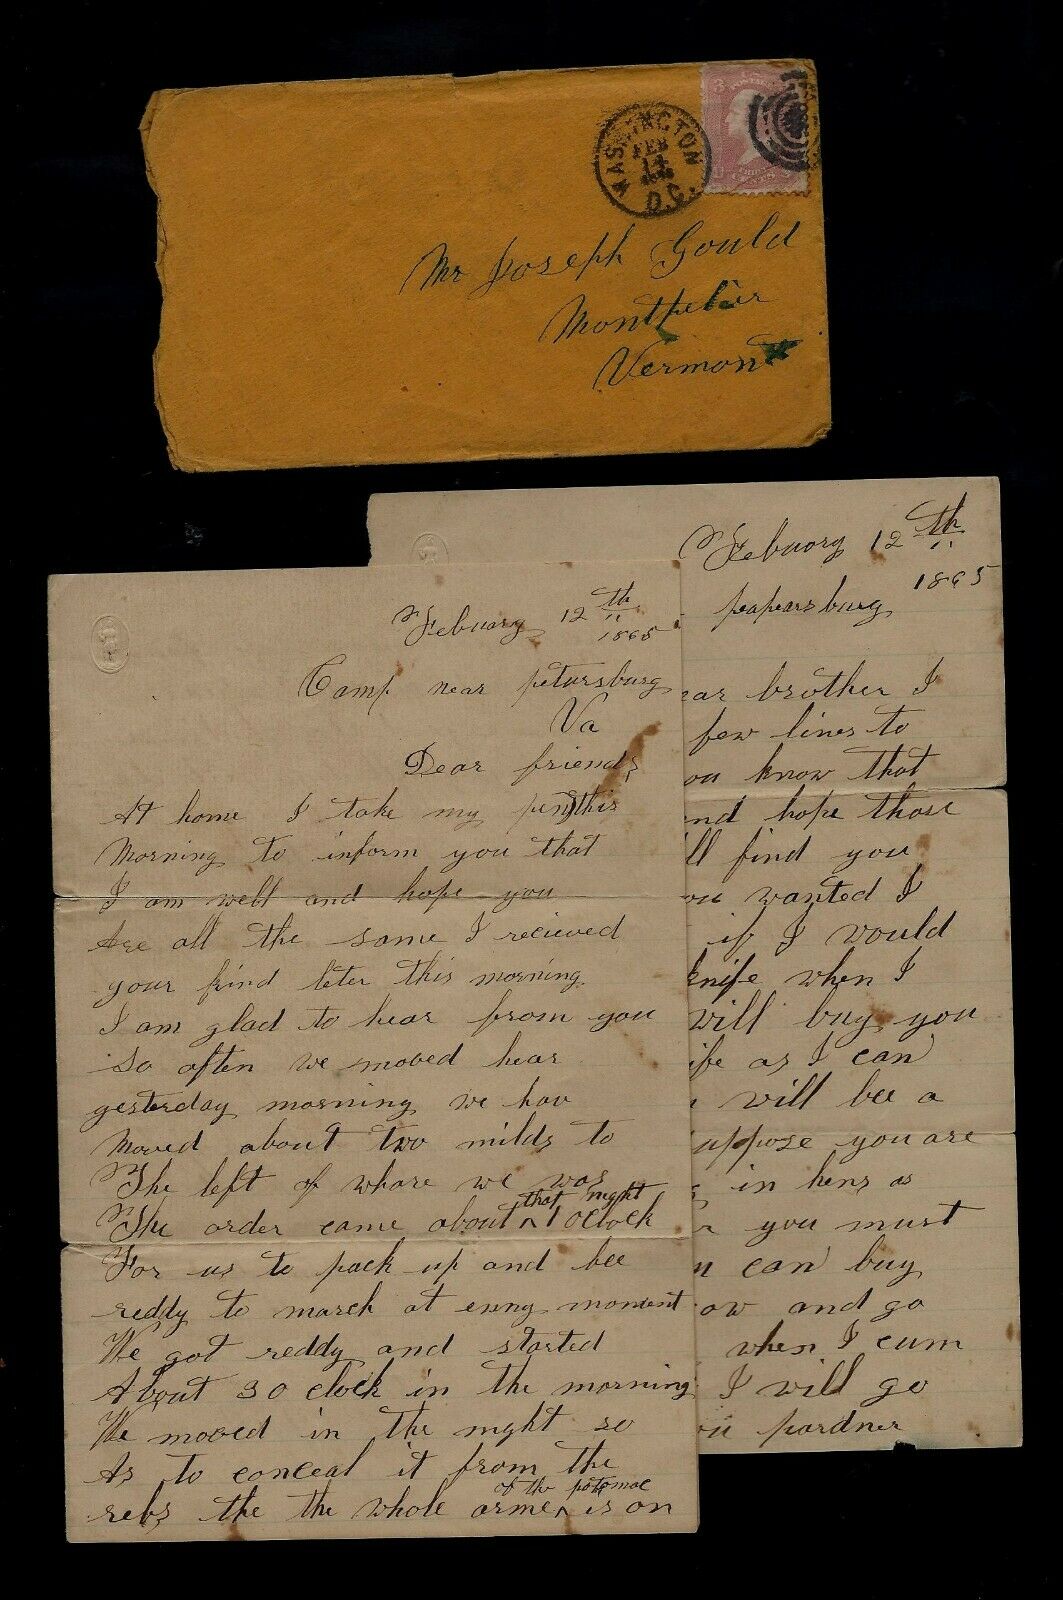 WASHINGTON
FEB
14
D.C.
3
Mr Joseph Gould
Montpelier
Vermont
Febuary 12th
1865
Camp near petursburg
Va
Dear friends
At home I take my pen this
Morning to inform you that
I am well and hope you
Are all the same I recieved
your frind leter this morning
I am glad to hear from you
So often we moved hear
yesterday morning we hav
Moved about two milds to
The left of whare we was
The order came about that night 1 Oclock
For us to pack up and bee
reddy to march at enny moment
We got reddy and started
About 3 O clock in the morning
We moved in the night so
As to conceal it from the
rebs the the whole arme of the potomac is on
Febuory 12th
1865
peapersburg
ear brother I
few lines to
ou know that
nd hope those
ll find you
ou wanted I
if I would
knife when I
will buy you
ife as I can
will bee a
uppose you are
in hens as
you must
can buy
ow and go
when I cum
I will go
pardner